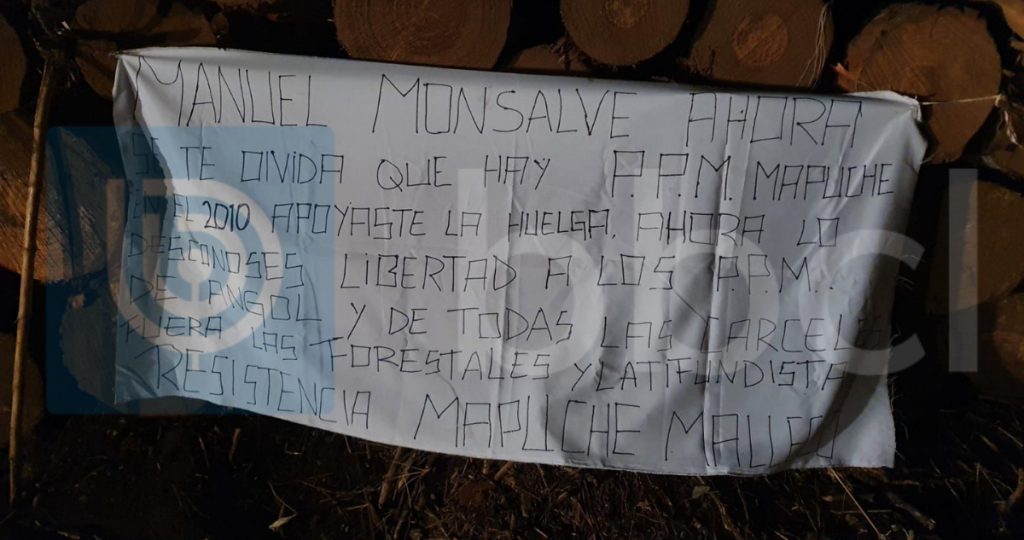 MANUEL MONSALVE AHORA
SE TE OLVIDA QUE HAY P.P.M. MAPUCHE
EN EL 2010 APOYASTE LA HUELGA. AHORA LO
DESCONOSES LIBERTAD A LOS P.P.M..
DE ANGOL Y DE TODAS LAS CARCELES
FUERA LAS FORESTALES Y LATIFUNDISTA
RESISTENCIA MAPUCHE MALLECO
bbcl